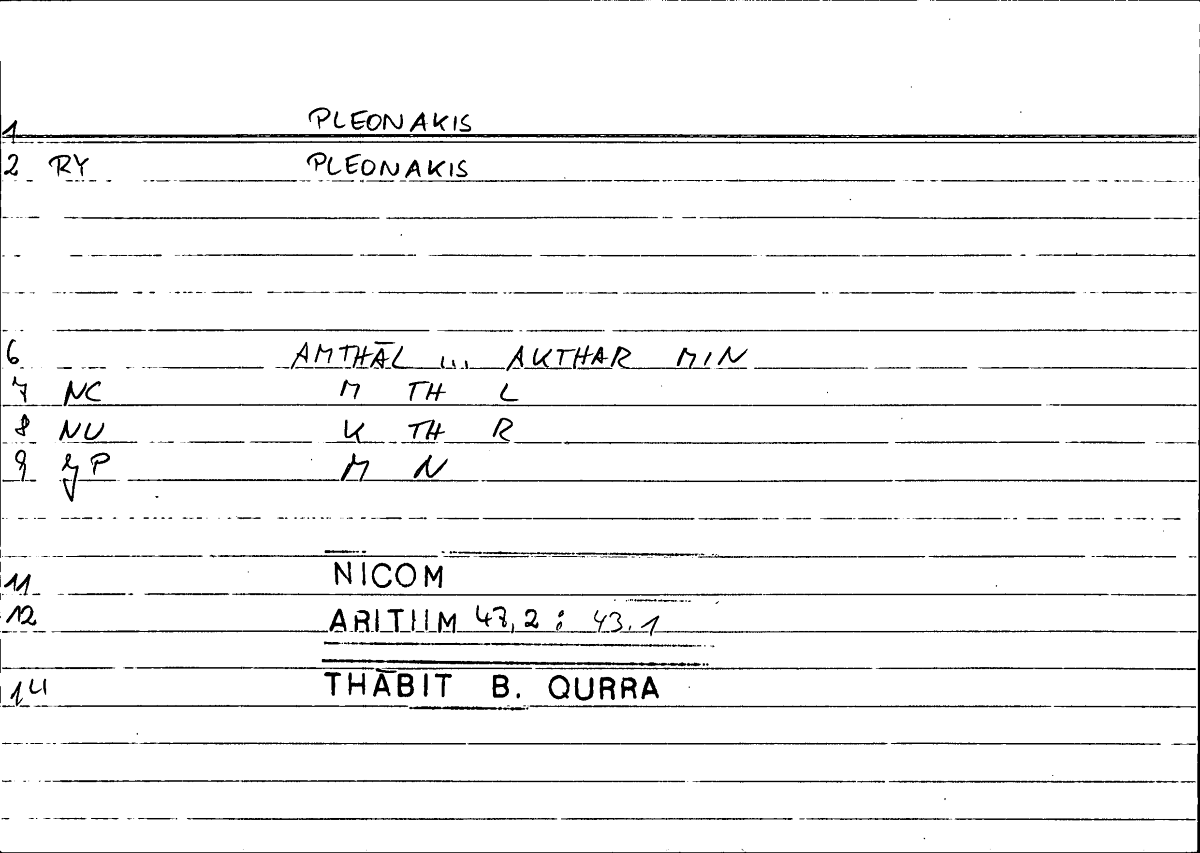 1 PLEONAKIS
2 RY PLEONAKIS
6 AMTHĀL ... AKTHAR MIN
7 NC M TH L
8 NU K TH R
9 P M N
11 NICOM
12 ARITHM 47,2 : 43.1
14 THĀBIT B. QURRA